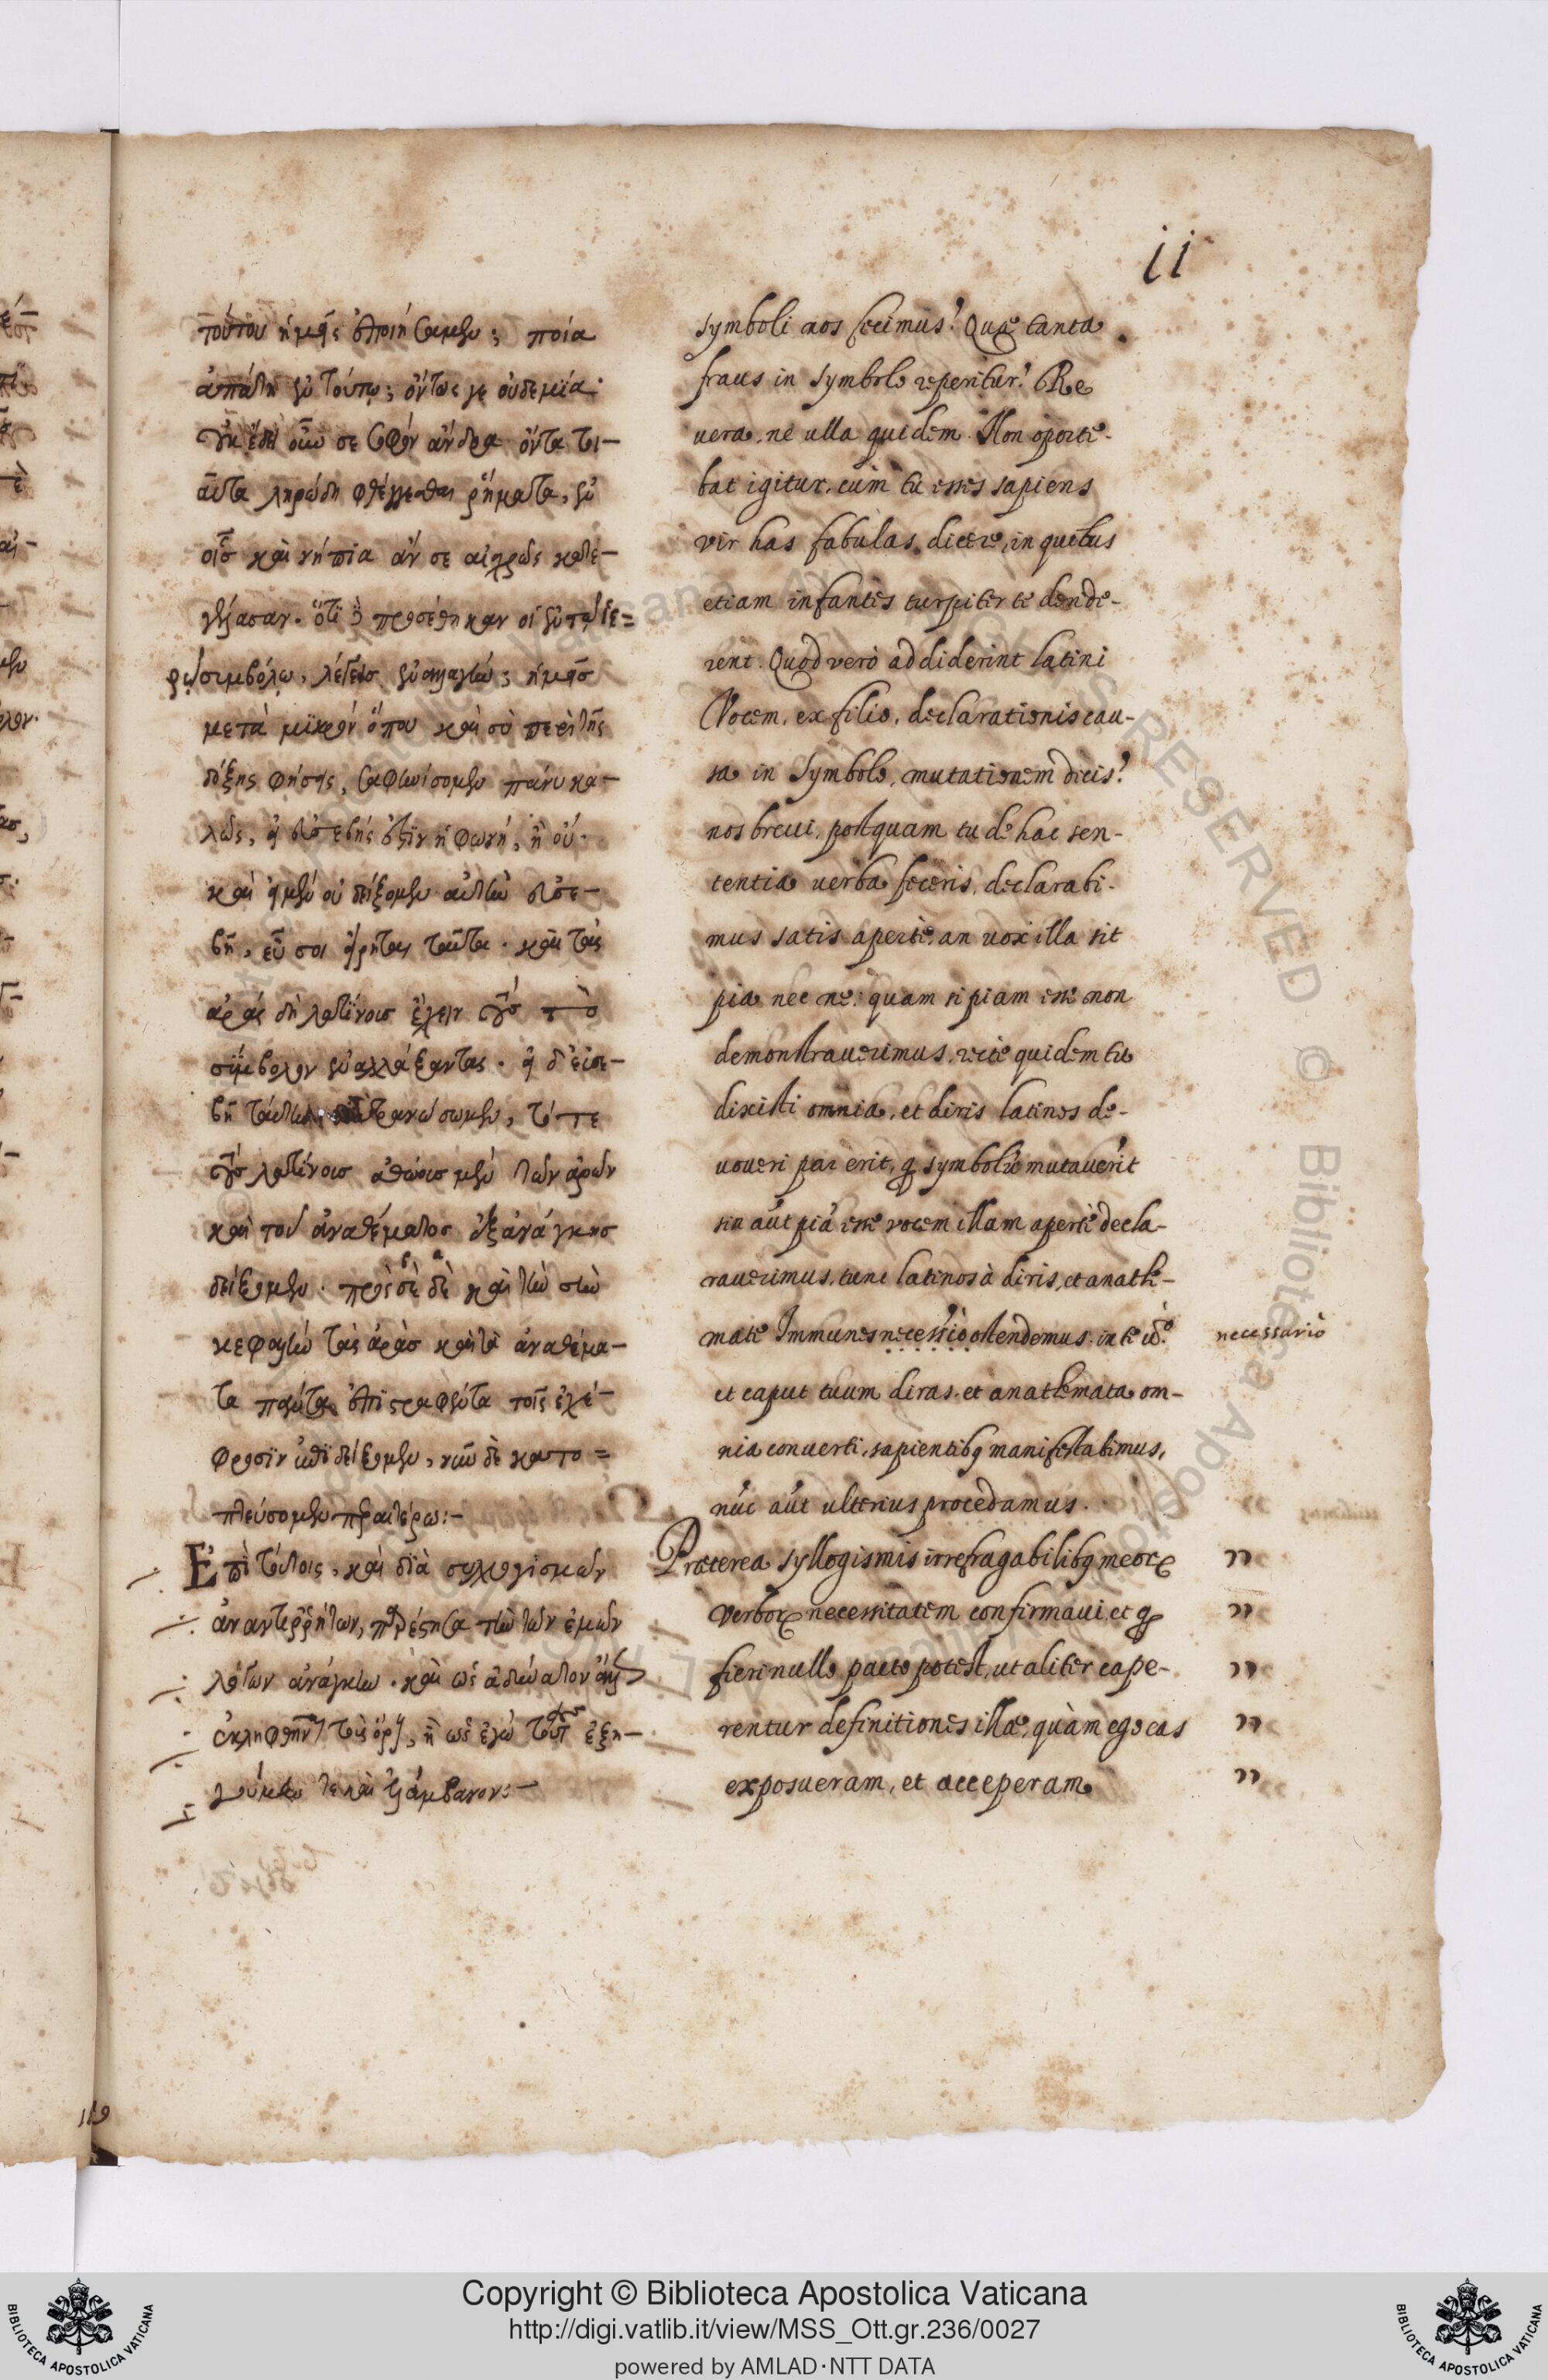 11
τούτου ἡμεῖς ἐποιήσαμεν; ποία
ἀπάτη ἐν τούτῳ; ὄντως γε οὐδεμία·
οὐκ ἔδει οὖν σε σοφὸν ἄνδρα ὄντα τοι-
αῦτα ληρώδη φθέγγεσθαι ῥήματα, ἐν
οἷς καὶ νήπια ἄν σε αἰσχρῶς κατε-
γέλασαν. ὅτι δὲ προσέθηκαν οἱ ἐν τῷ ἱε-
ρῷ συμβόλῳ, λέγεις ἐναλλαγήν; ἡμεῖς
μετὰ μικρὸν ὅπου καὶ σὺ περὶ τῆς
δόξης φήσεις, σαφηνίσομεν πάνυ κα-
λῶς, εἰ εὐσεβής ἐστιν ἡ φωνή, ἢ οὔ·
καὶ εἰ μὲν οὐ δείξομεν αὐτὴν εὐσε-
βῆ, εὖ σοι εἴρηται ταῦτα· καὶ τὰς
ἀρὰς δὴ λατίνοις ἔχειν ὡς τὸ
σύμβολον ἐναλλάξαντας· εἰ δ' εὐσε-
βῆ ταύτην τρανώσωμεν, τότε
τοὺς λατίνοις ἀθώους μὲν τῶν ἀρῶν
καὶ τοῦ ἀναθέματος ἐξ ἀνάγκης
δείξομεν· πρὸς δὲ σὲ καὶ τὴν σὴν
κεφαλὴν τὰς ἀρὰς καὶ τὰ ἀναθέμα-
τα πάντα ἐπιστραφέντα τοῖς ἐχέ-
φροσιν ἀποδείξομεν, νῦν δὲ κατο-
πτεύσομεν περαιτέρω:-
Ἐπὶ τούτοις, καὶ διὰ συλλογισμῶν
ἀναντιρρήτων, παρέστησα τὴν τῶν ἐμῶν
λόγων ἀνάγκην. καὶ ὡς ἀδύνατον ἄλλως
ἐκληφθῆναι τοὺς ὅρους, ἢ ὡς ἐγὼ τούτους ἐξη-
γούμην τε καὶ ἐλάμβανον:-
symboli nos fecimus? Quæ tanta
fraus in symbolo reperitur? Re
uera, ne ulla quidem. Non oporte-
bat igitur, cùm tu esses sapiens
vir has fabulas dicere, in quibus
etiam infantes turpiter te deride-
rent. Quod verò addiderint latini
Vocem, ex filio, declarationis cau-
sa in Symbolo, mutationem dicis?
nos breui, postquam tu de hac sen-
tentia uerba feceris, declarabi-
mus satis apertè, an uox illa sit
pia nec ne: quam si piam esse non
demonstrauerimus, recte quidem tu
dixisti omnia, et diris latinos de-
uoueri par erit, q symbolũ mutauerĩt
sin aũt piã esse vocem illam apertè decla-
rauerimus, tunc latinos à diris, et anathe-
mate Immunes necessiò ostendemus: in te uº.
necessariò
et caput tuum diras, et anathemata om-
nia conuerti, sapientibq manifestabimus,
nũc aũt ulterius procedamus.
Præterea syllogismis irrefragabilibq meoꝝ ”
verboꝝ necessitatem confirmaui, et q ”
fieri nullo pacto potest, ut aliter cape- ”
rentur definitiones illæ, quàm ego eas ”
exposueram, et acceperam ”
119
Copyright © Biblioteca Apostolica Vaticana
http://digi.vatlib.it/view/MSS_Ott.gr.236/0027
powered by AMLAD·NTT DATA
BIBLIOTECA APOSTOLICA VATICANA
BIBLIOTECA APOSTOLICA VATICANA